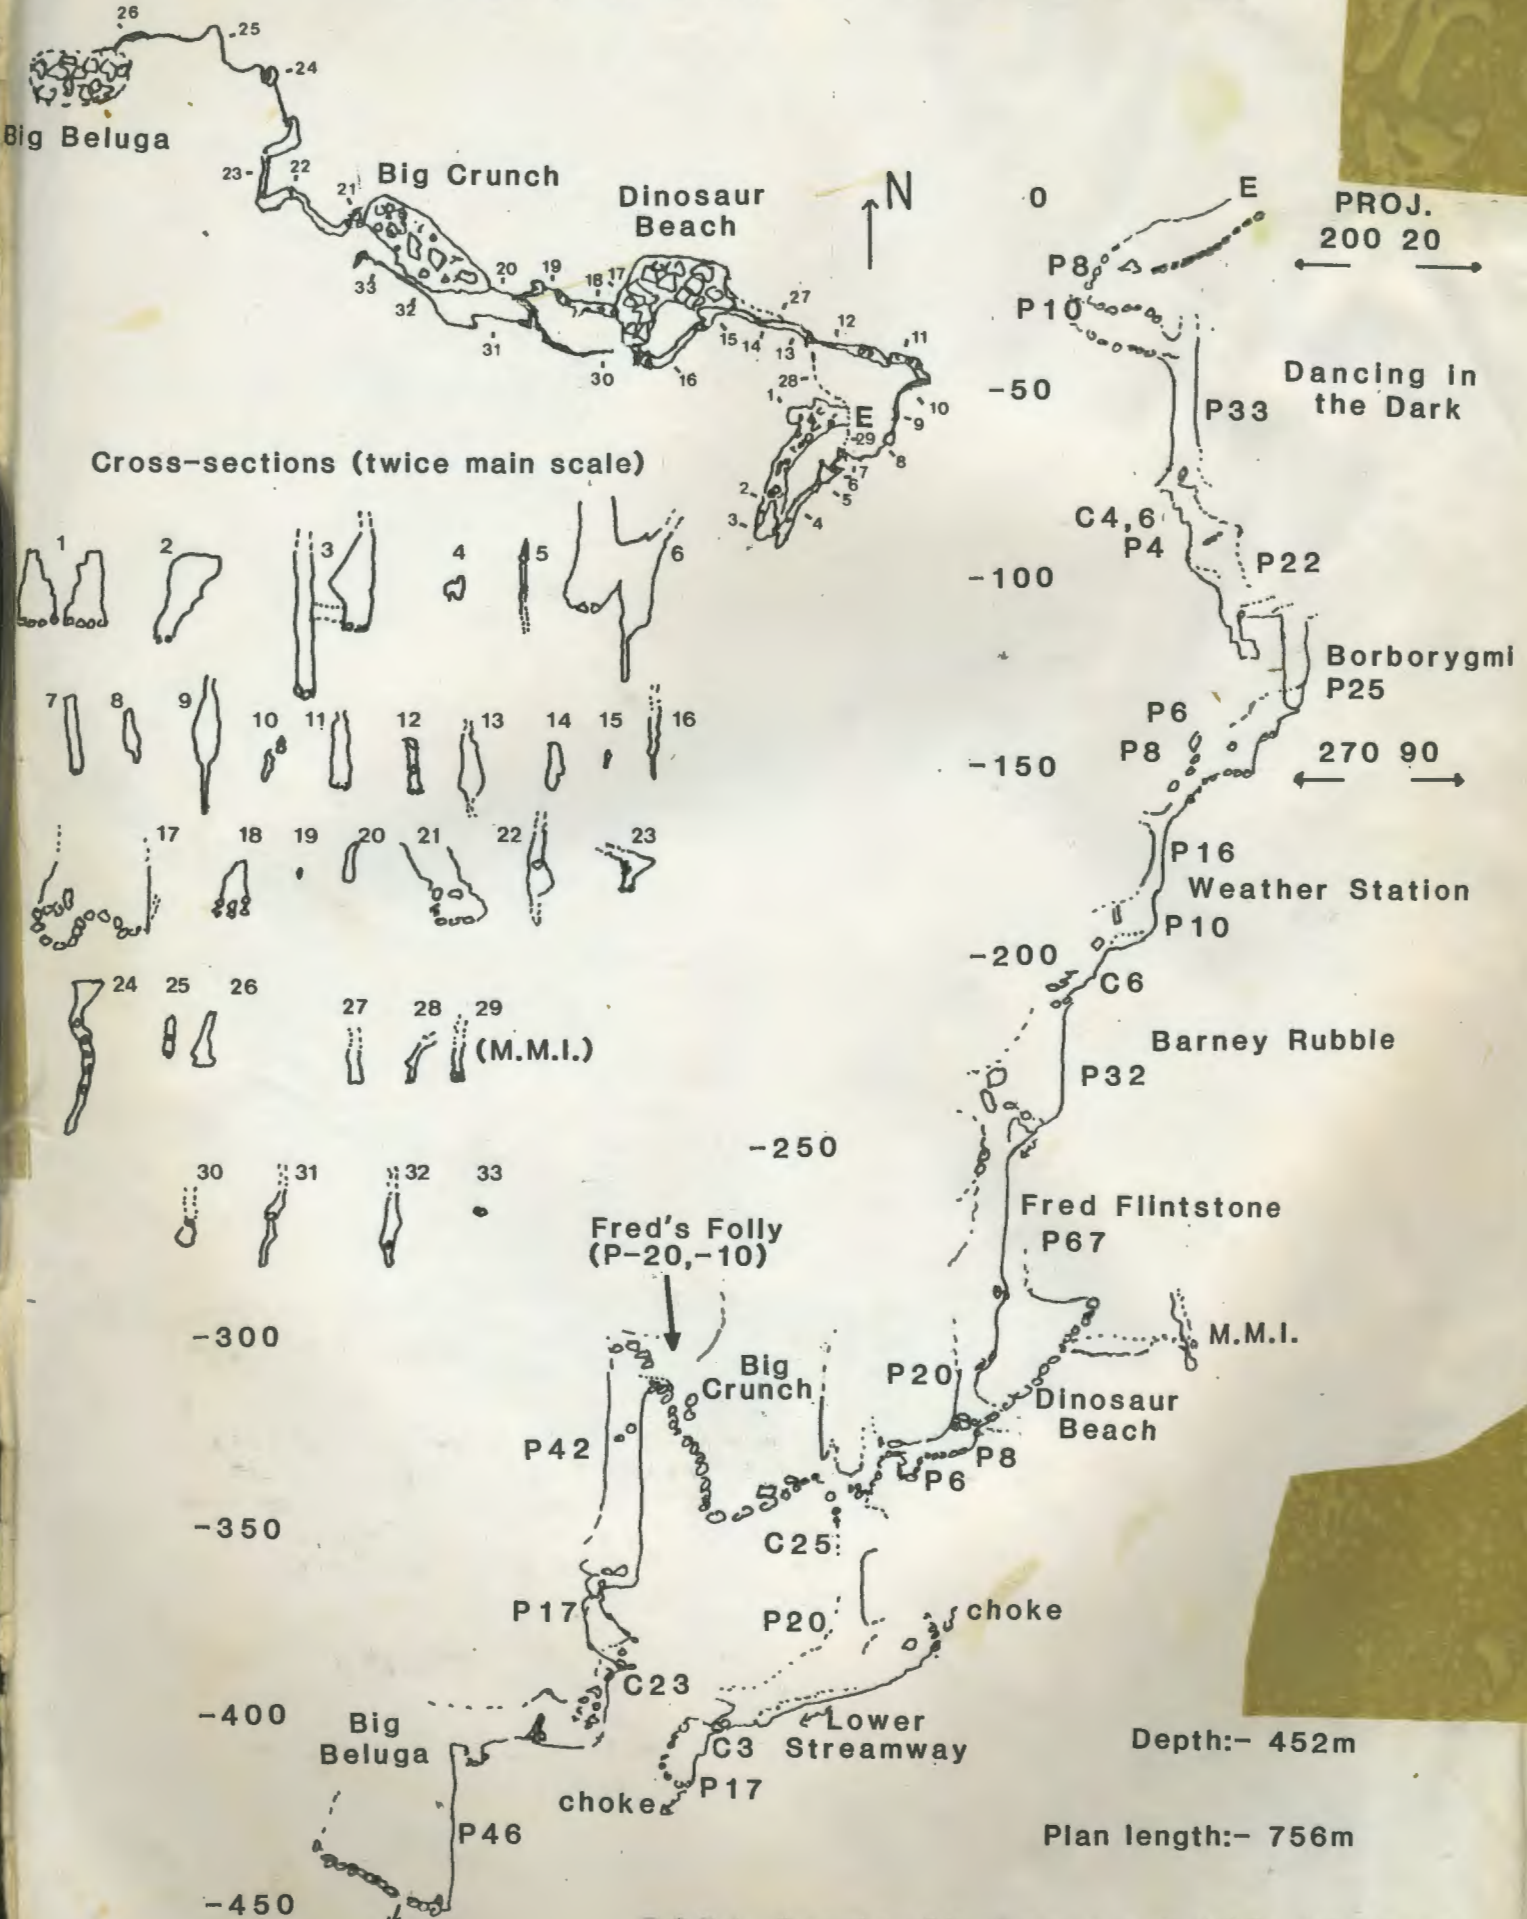 26
25
24
Big Beluga
23
22
21
Big Crunch
Dinosaur
Beach
N
33
32
31
20
19
18
17
30
16
15
14
13
27
12
11
28
10
9
1
E
29
8
7
6
5
4
3
2
Cross-sections (twice main scale)
1
2
3
4
5
6
7
8
9
10
11
12
13
14
15
16
17
18
19
20
21
22
23
24
25
26
27
28
29
(M.M.I.)
30
31
32
33
0
E
PROJ.
200 20
P8
P10
-50
Dancing in
the Dark
P33
C4,6
P4
P22
-100
Borborygmi
P25
P6
P8
-150
270 90
P16
Weather Station
P10
-200
C6
Barney Rubble
P32
-250
Fred Flintstone
P67
Fred's Folly
(P-20,-10)
-300
M.M.I.
Big
Crunch
P20
Dinosaur
Beach
P42
P8
P6
-350
C25
P17
P20
choke
C23
-400
Big
Beluga
Lower
Streamway
C3
P17
choke
Depth:- 452m
P46
Plan length:- 756m
-450